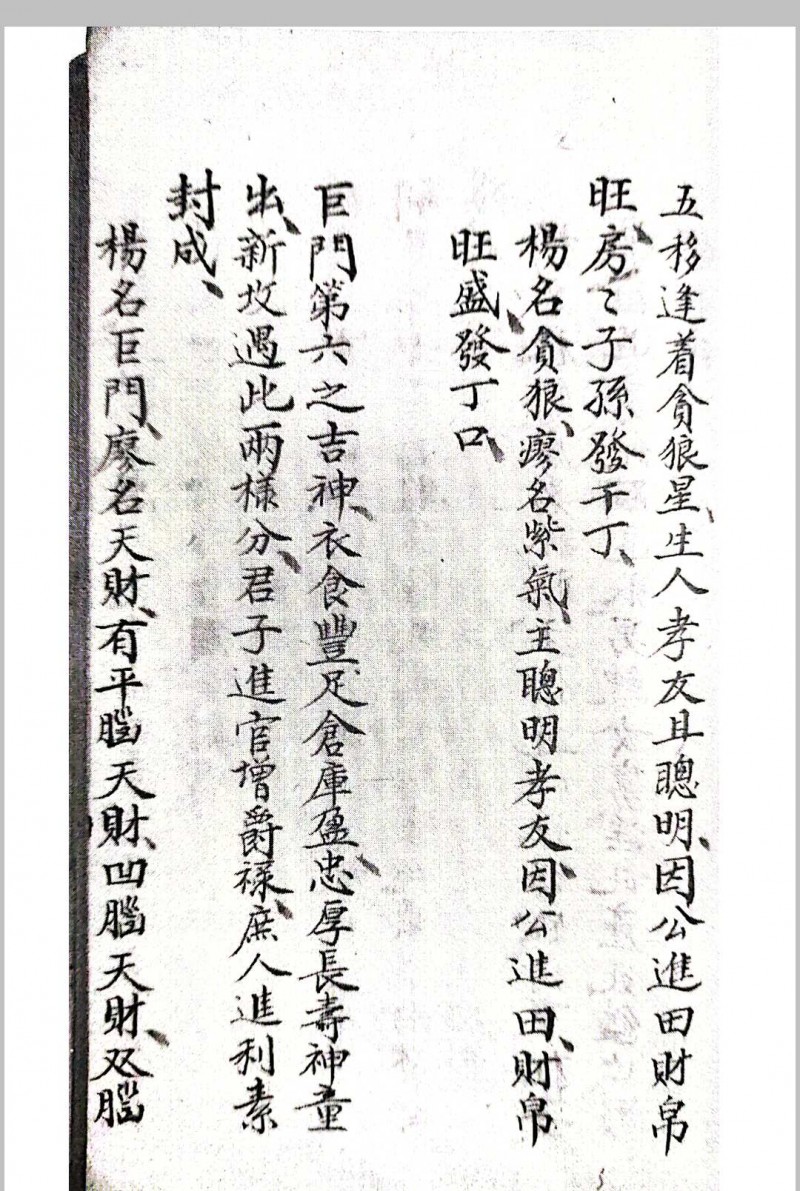 五移逢着貪狼星、生人孝友且聰明、因公進田財帛
旺、房〻子孫發千丁、
楊名貪狼、廖名紫氣、主聰明孝友、因公進田、財帛
旺盛、發丁口、
巨門第六之吉神、衣食豐足倉庫盈、忠厚長壽神童
出、新坟遇此兩樣分、君子進官增爵祿、庶人進利素
封成、
楊名巨門、廖名天財、有平腦天財、凹腦天財、双腦